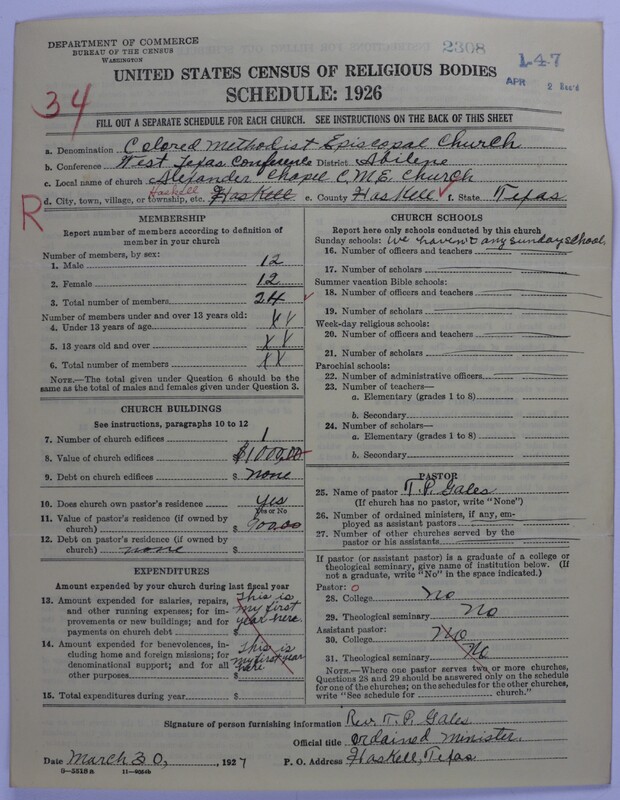 DEPARTMENT OF COMMERCE
BUREAU OF THE CENSUS
WASHINGTON
2308
147
APR 2
34
UNITED STATES CENSUS OF RELIGIOUS BODIES
SCHEDULE: 1926
FILL OUT A SEPARATE SCHEDULE FOR EACH CHURCH. SEE INSTRUCTIONS ON THE BACK OF THIS SHEET
a. Denomination Colored Methodist Episcopal Church
b. Conference West Texas Conference District Abilene
c. Local name of church Alexander Chapel C.M.E. Church
Haskell
d. City, town, village, or township, etc. Haskell e. County Haskell f. State Texas
R
MEMBERSHIP
Report number of members according to definition of
member in your church
Number of members, by sex:
1. Male 12
2. Female 12
3. Total number of members 24
Number of members under and over 13 years old:
4. Under 13 years of age XX
5. 13 years old and over XX
6. Total number of members XX
NOTE.—The total given under Question 6 should be the
same as the total of males and females given under Question 3.
CHURCH BUILDINGS
See instructions, paragraphs 10 to 12
7. Number of church edifices 1
8. Value of church edifices $1000.00
9. Debt on church edifices $ none
10. Does church own pastor's residence Yes
Yes or No
11. Value of pastor's residence (if owned by
church) $
12. Debt on pastor's residence (if owned by
church) none $
EXPENDITURES
Amount expended by your church during last fiscal year
13. Amount expended for salaries, repairs,
and other running expenses; for im-
provements or new buildings; and for
payments on church debt $
This is
my first
year here.
14. Amount expended for benevolences, in-
cluding home and foreign missions; for
denominational support; and for all
other purposes $
This is
my first year
here
15. Total expenditures during year $
CHURCH SCHOOLS
Report here only schools conducted by this church
Sunday schools: We haven't any sunday school.
16. Number of officers and teachers
17. Number of scholars
Summer vacation Bible schools:
18. Number of officers and teachers
19. Number of scholars
Week-day religious schools:
20. Number of officers and teachers
21. Number of scholars
Parochial schools:
22. Number of administrative officers
23. Number of teachers—
a. Elementary (grades 1 to 8)
b. Secondary
24. Number of scholars—
a. Elementary (grades 1 to 8)
b. Secondary
PASTOR
25. Name of pastor T. P. Gales
(If church has no pastor, write "None")
26. Number of ordained ministers, if any, em-
ployed as assistant pastors
27. Number of other churches served by the
pastor or his assistants
If pastor (or assistant pastor) is a graduate of a college or
theological seminary, give name of institution below. (If
not a graduate, write "No" in the space indicated.)
Pastor: 0
28. College No
29. Theological seminary No
Assistant pastor:
30. College No
31. Theological seminary No
NOTE.—Where one pastor serves two or more churches,
Questions 28 and 29 should be answered only on the schedule
for one of the churches; on the schedules for the other churches,
write "See schedule for church."
Signature of person furnishing information Rev. T. P. Gales
Official title Ordained Minister.
Date March 30, 1927 P. O. Address Haskell, Texas